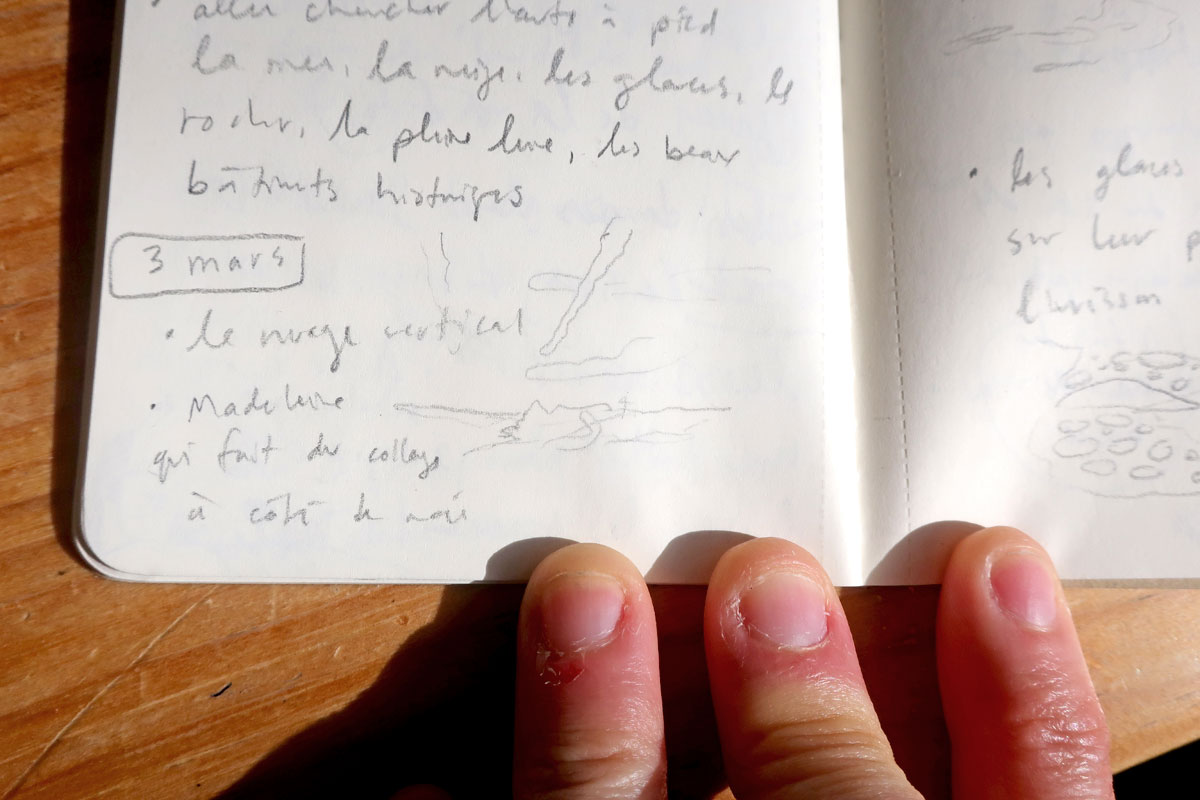 aller chercher l'auto à pied
la mer, la neige, les glaces, le
rocher, la pleine lune, les beaux
bâtiments historiques
3 mars
• le nuage vertical
• Madeleine
qui fait du collage
à côté de moi
• les glaces
sur leur p